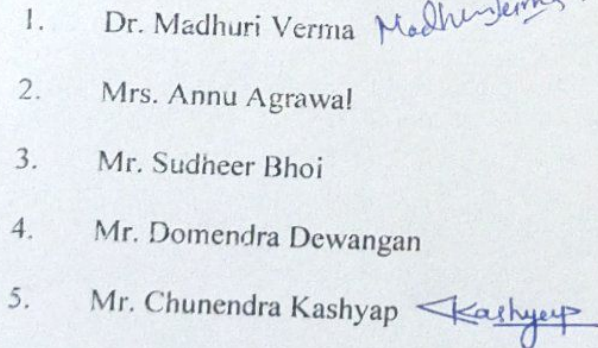 1. Dr. Madhuri Verma Madhuriverma
2. Mrs. Annu Agrawal
3. Mr. Sudheer Bhoi
4. Mr. Domendra Dewangan
5. Mr. Chunendra Kashyap Kashyap